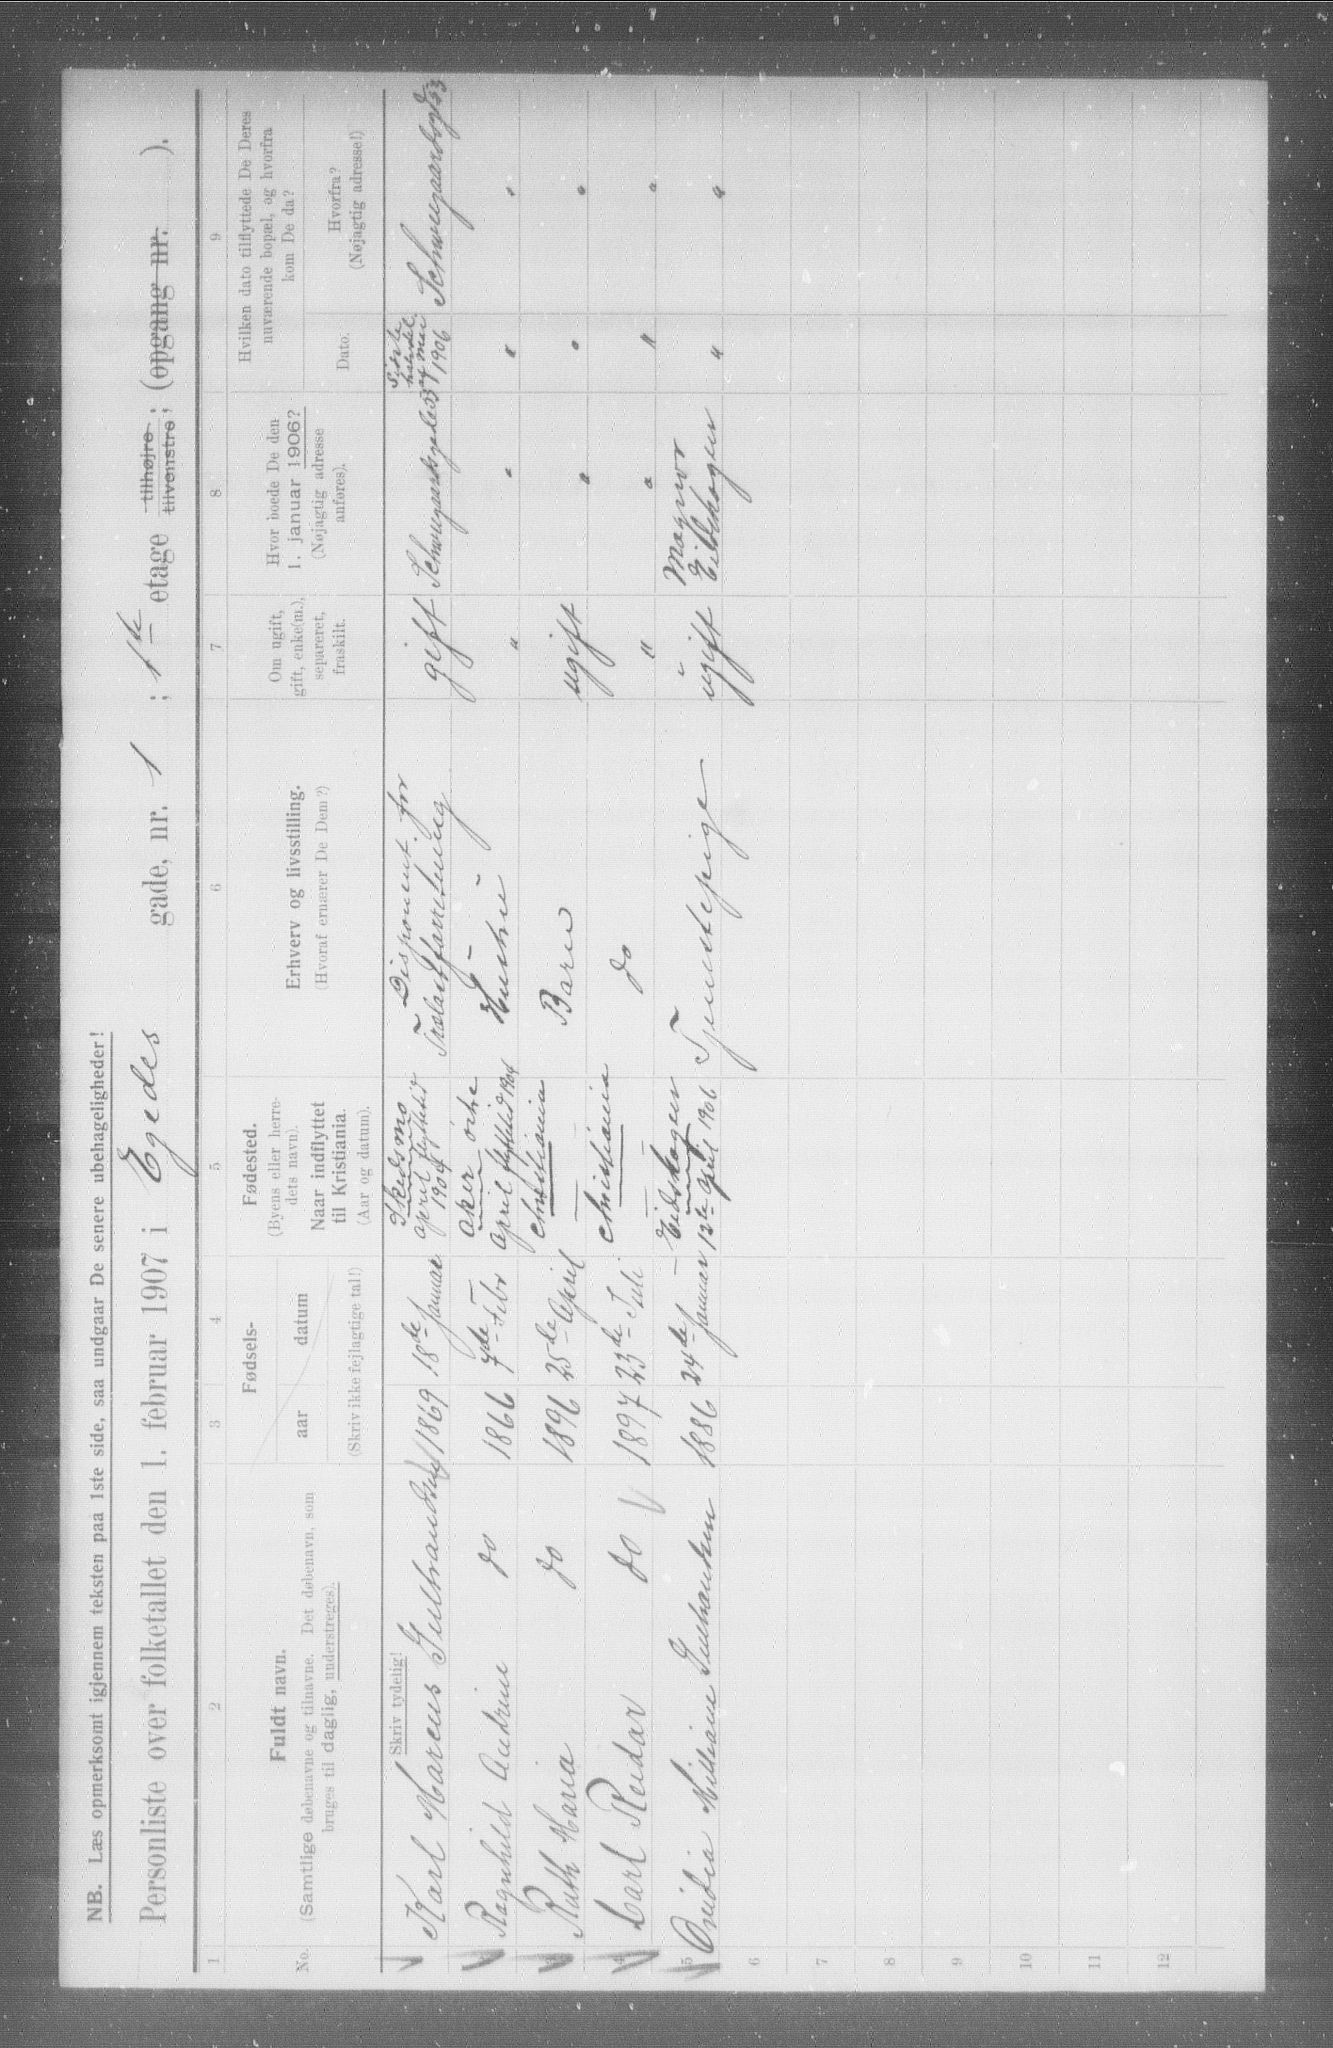 NB. Læs opmerksomt igjennem teksten paa 1ste side, saa undgaar De senere ubehageligheder!
Personliste over folketallet den 1. februar 1907 i Egedes gade, nr. 1 ; 1ste etage tilhøjre ; tilvenstre; (opgang nr. ).
1 2 3 4 5 6 7 8 9
No.
Fuldt navn.
(Samtlige døbenavne og tilnavne. Det døbenavn, som
bruges til daglig, understreges).
Fødsels-
aar datum
(Skriv ikke fejlagtige tal!)
Fødested.
(Byens eller herre-
dets navn).
Naar indflyttet
til Kristiania.
(Aar og datum).
Erhverv og livsstilling.
(Hvoraf ernærer De Dem?)
Om ugift,
gift, enke(m.),
separeret,
fraskilt.
Hvor boede De den
1. januar 1906?
(Nøjagtig adresse
anføres).
Hvilken dato tilflyttede De Deres
nuværende bopæl, og hvorfra
kom De da?
Dato.
Hvorfra?
(Nøjagtig adresse!)
Skriv tydelig!
Karl Marcus 1869 18de Januar Skedsmo april flyttetid 1904 Disponent for gift 1906
Ragnhild Andrine do 1866 7de Febr Aker april flyttetid 1904 Hustru " " " "
3 Ruth Maria do 1896 25de April Christiania Barn ugift " " "
4 Carl Reidar do 1897 23de Juli Christiania do " " " "
5 1886 24de Januar Eidskogen april 1906 Tjenestepige ugift Magnor i Eidskogen " "
6
7
8
9
10
11
12